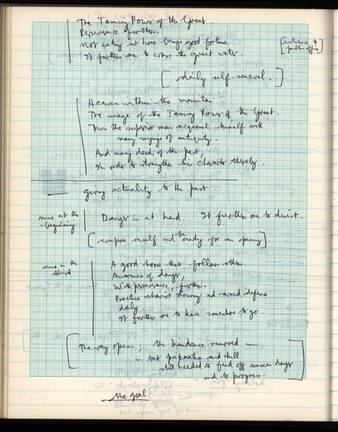 The Taming Power of the Great.
Perseverance furthers.
Not eating at home brings good fortune.
It furthers one to cross the great water.
[daily self-renewal.]
Heaven within the mountain
The image of the Taming Power of the Great.
Thus the superior man acquaints himself with
many sayings of antiquity
And many deeds of the past
In order to strengthen his character thereby.
giving actuality to the past
nine at the
beginning
Danger is at hand. It furthers one to desist.
[compose oneself and be ready for an opening]
nine in the
third
A good horse that follows others.
Awareness of danger,
With perseverance, furthers.
Practice chariot driving and armed defense
daily.
It furthers one to have somewhere to go.
[The way opens; the hindrance removed —
— but and still
needed to fend off danger
and to progress.]
No goal